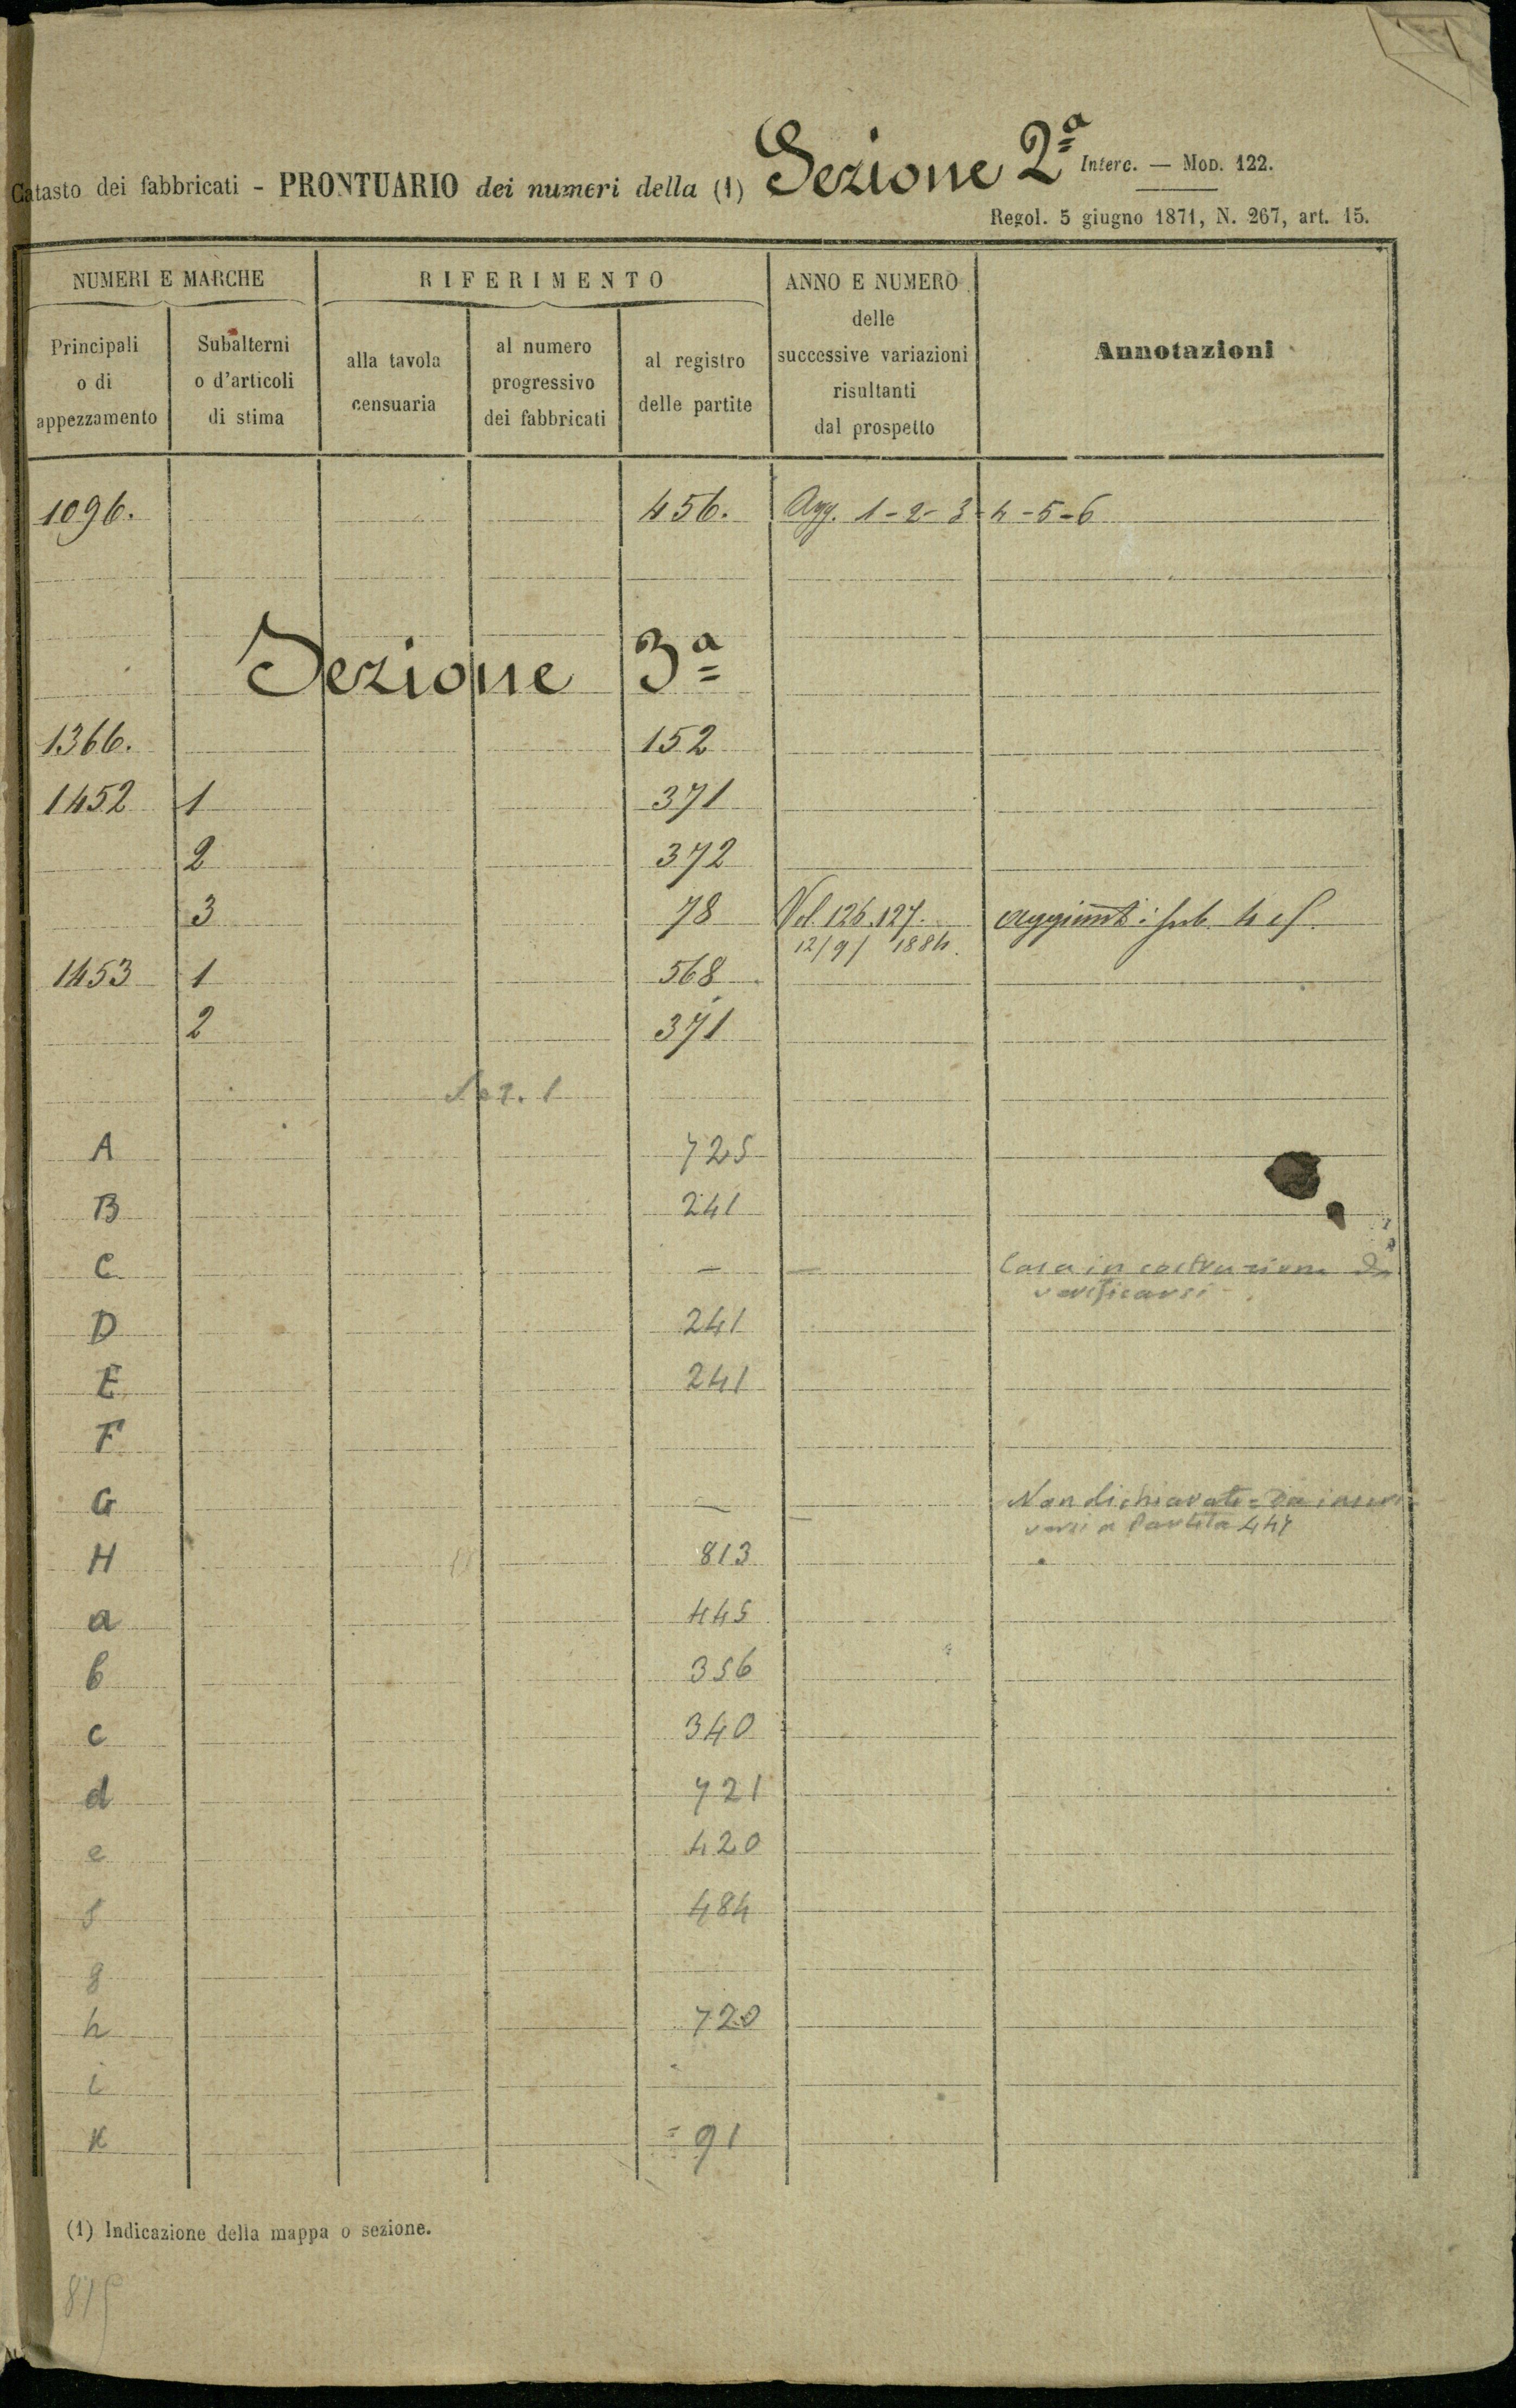 Catasto dei fabbricati - PRONTUARIO dei numeri della (1) Sezione 2ª Interc. — Mod. 122.
Regol. 5 giugno 1871, N. 267, art. 15.
NUMERI E MARCHE RIFERIMENTO ANNO E NUMERO delle successive variazioni risultanti dal prospetto Annotazioni
Principali o di appezzamento Subalterni o d'articoli di stima alla tavola censuaria al numero progressivo dei fabbricati al registro delle partite
1096. 456. Agg. 1-2-3-4-5-6
Sezione 3ª
1366. 152
1452 1 371
2 372
3 78 Vol. 126.127. aggiunti: sub. 4 e
12/9/ 1884.
1453 1 568
2 371
Sez. 1
A 725
B 241
C — — Casa in costruzione Da
verificarsi
D 241
E 241
F
G — — Non dichiarato = Da
a Partita 447
H 813
a 445
b 356
c 340
d 721
e 420
f 484
g
h 720
i
K = 91
(1) Indicazione della mappa o sezione.